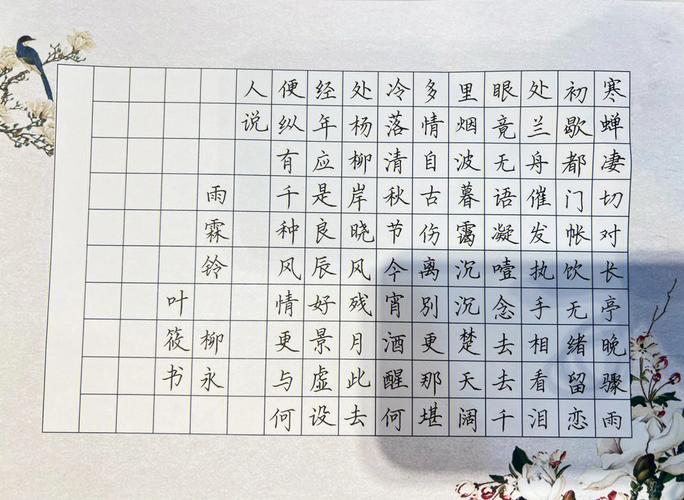 寒蝉凄切对长亭晚骤雨
初歇都门帐饮无绪留恋
处兰舟催发执手相看泪
眼竟无语凝噎念去去千
里烟波暮霭沉沉楚天阔
多情自古伤离别更那堪
冷落清秋节今宵酒醒何
处杨柳岸晓风残月此去
经年应是良辰好景虚设
便纵有千种风情更与何
人说
雨霖铃 柳永
叶筱书